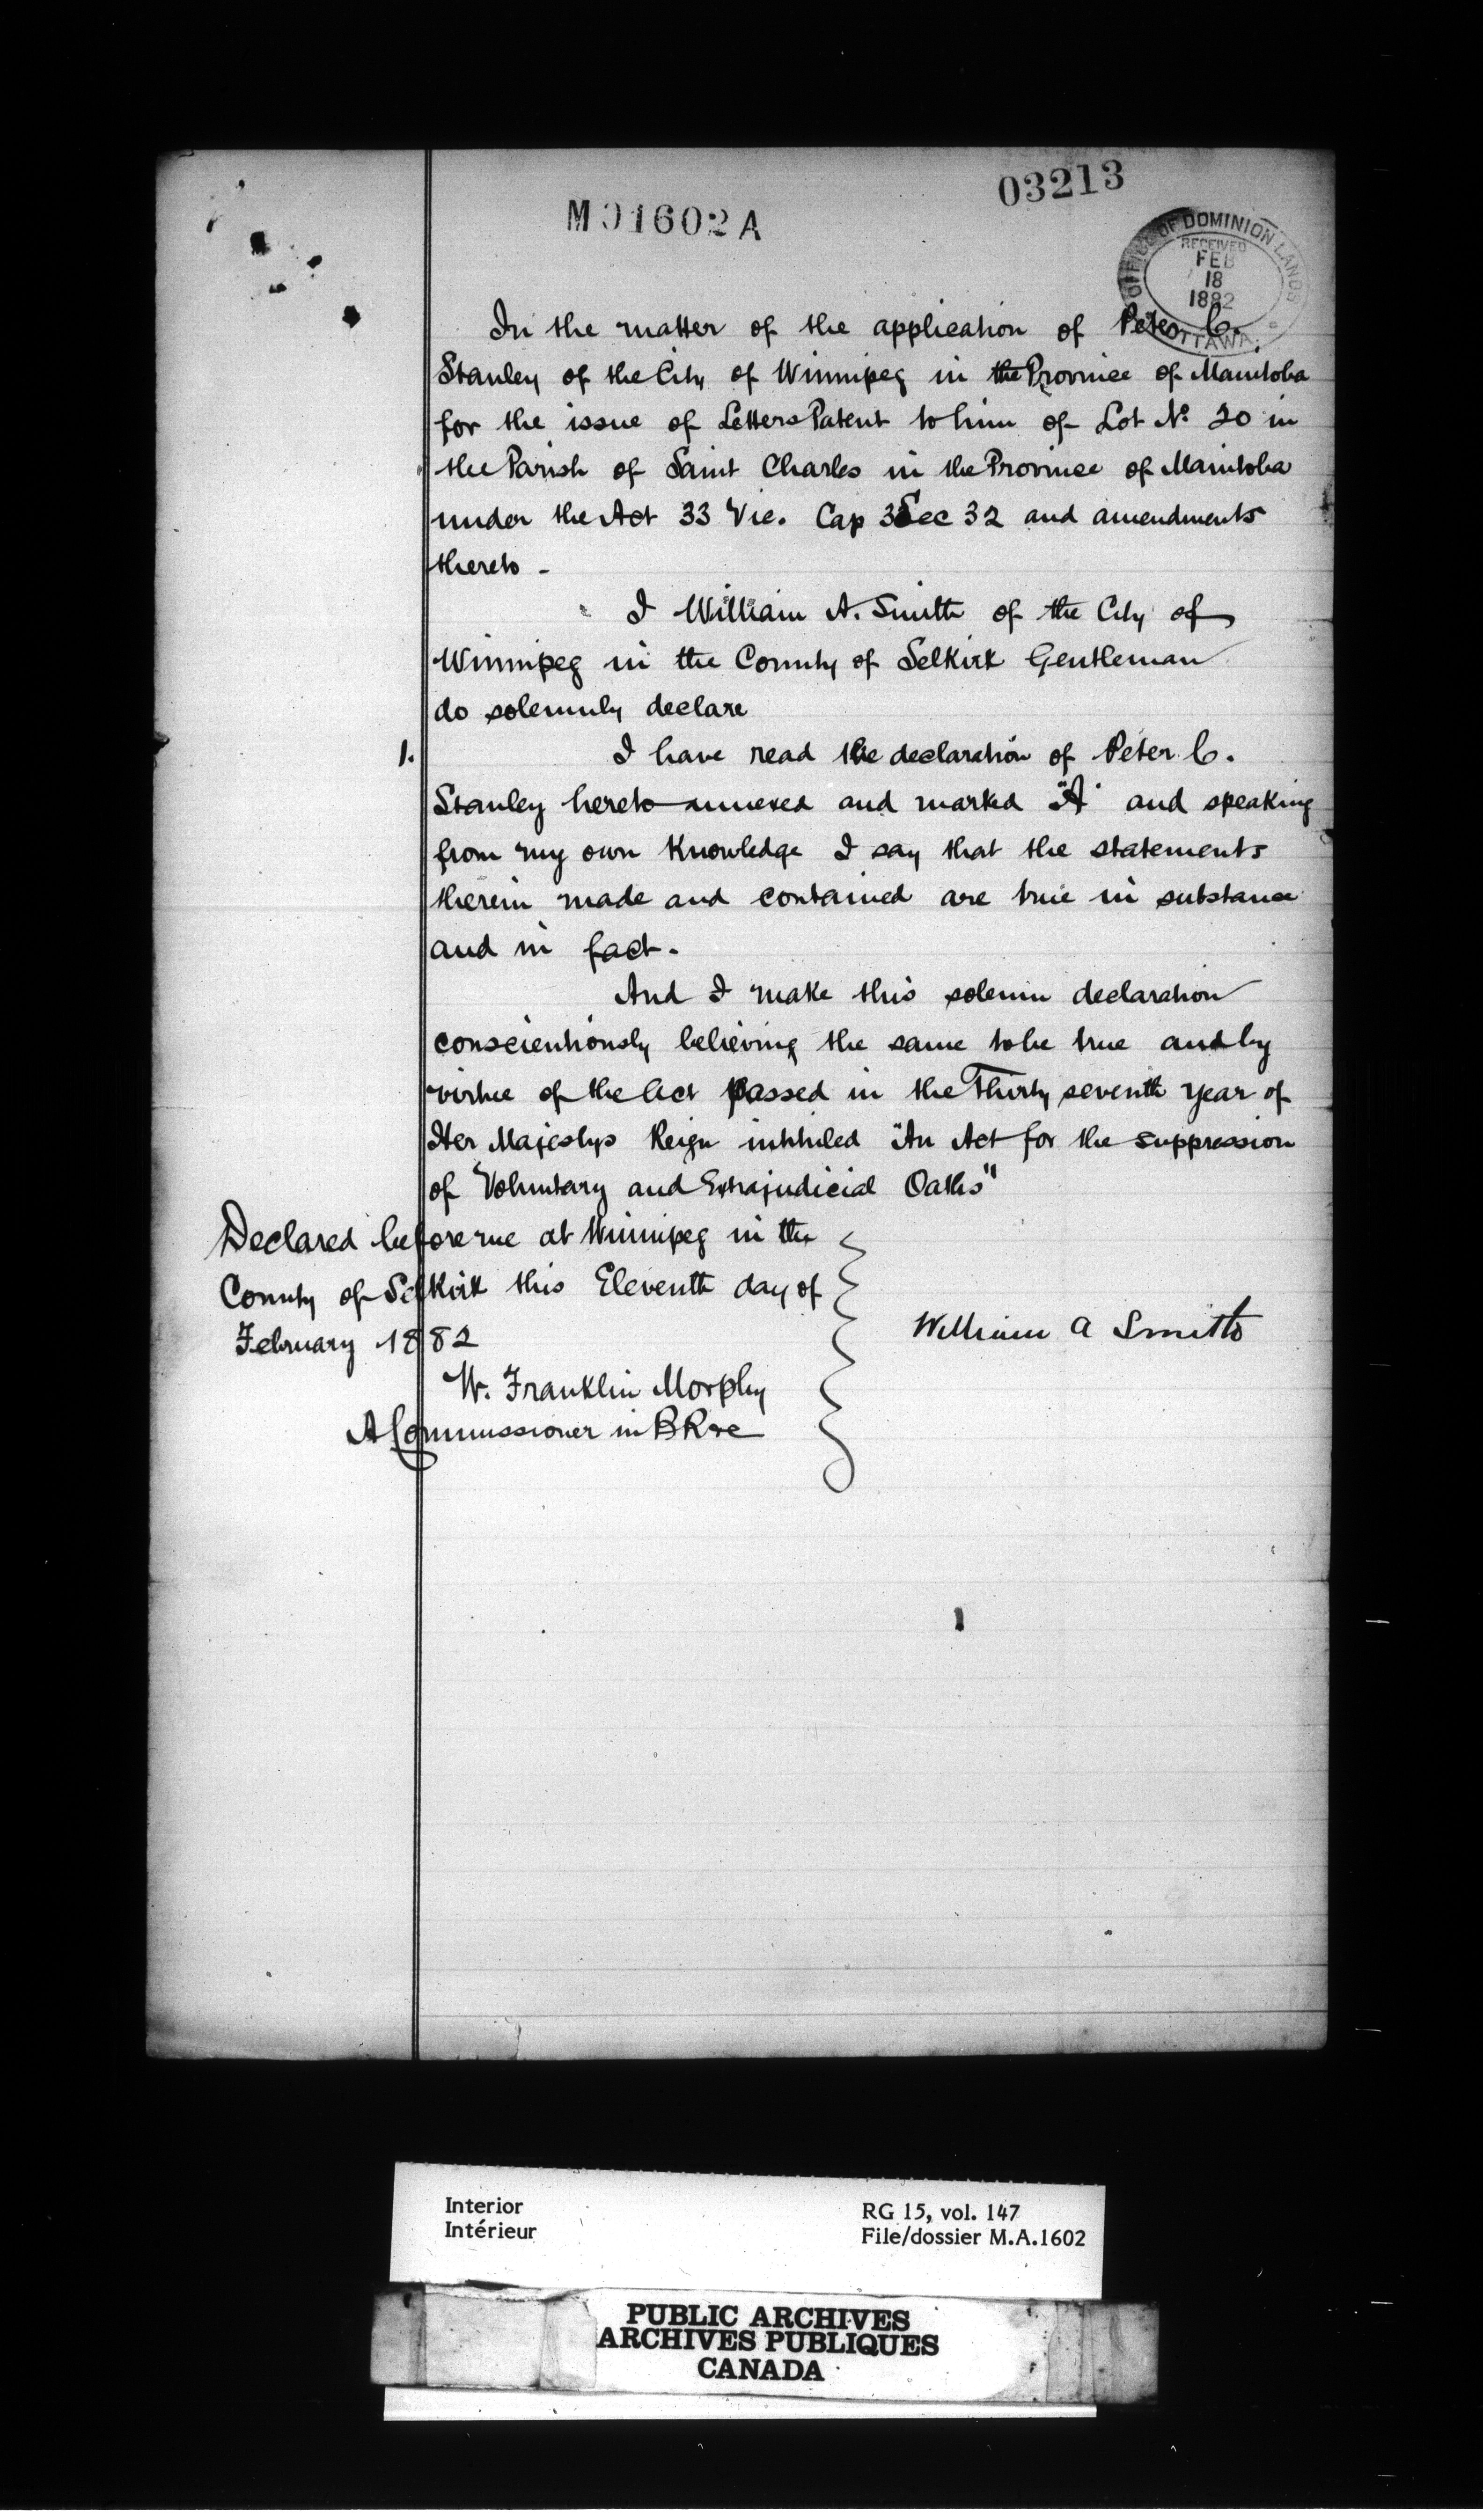 03213
M01602A
OFFICE OF DOMINION LANDS
RECEIVED
FEB
18
1882
OTTAWA
In the matter of the application of Peter C.
Stanley of the City of Winnipeg in the Province of Manitoba
for the issue of Letters Patent to him of Lot No 20 in
the Parish of Saint Charles in the Province of Manitoba
under the Act 33 Vic. Cap 3 Sec 32 and amendments
thereto -
I William A. Smith of the City of
Winnipeg in the County of Selkirk Gentleman
do solemnly declare
1. I have read the declaration of Peter C.
Stanley hereto annexed and marked "A" and speaking
from my own Knowledge I say that the statements
therein made and contained are true in substance
and in fact.
And I make this solemn declaration
conscientiously believing the same to be true and by
virtue of the Act passed in the Thirty seventh year of
Her Majestys Reign intituled "An Act for the suppression
of Voluntary and Extrajudicial Oaths"
Declared before me at Winnipeg in the
County of Selkirk this Eleventh day of
February 1882
William A Smith
W. Franklin Morphy
A Commissioner in BR &c
Interior
Intérieur
RG 15, vol. 147
File/dossier M.A.1602
PUBLIC ARCHIVES
ARCHIVES PUBLIQUES
CANADA